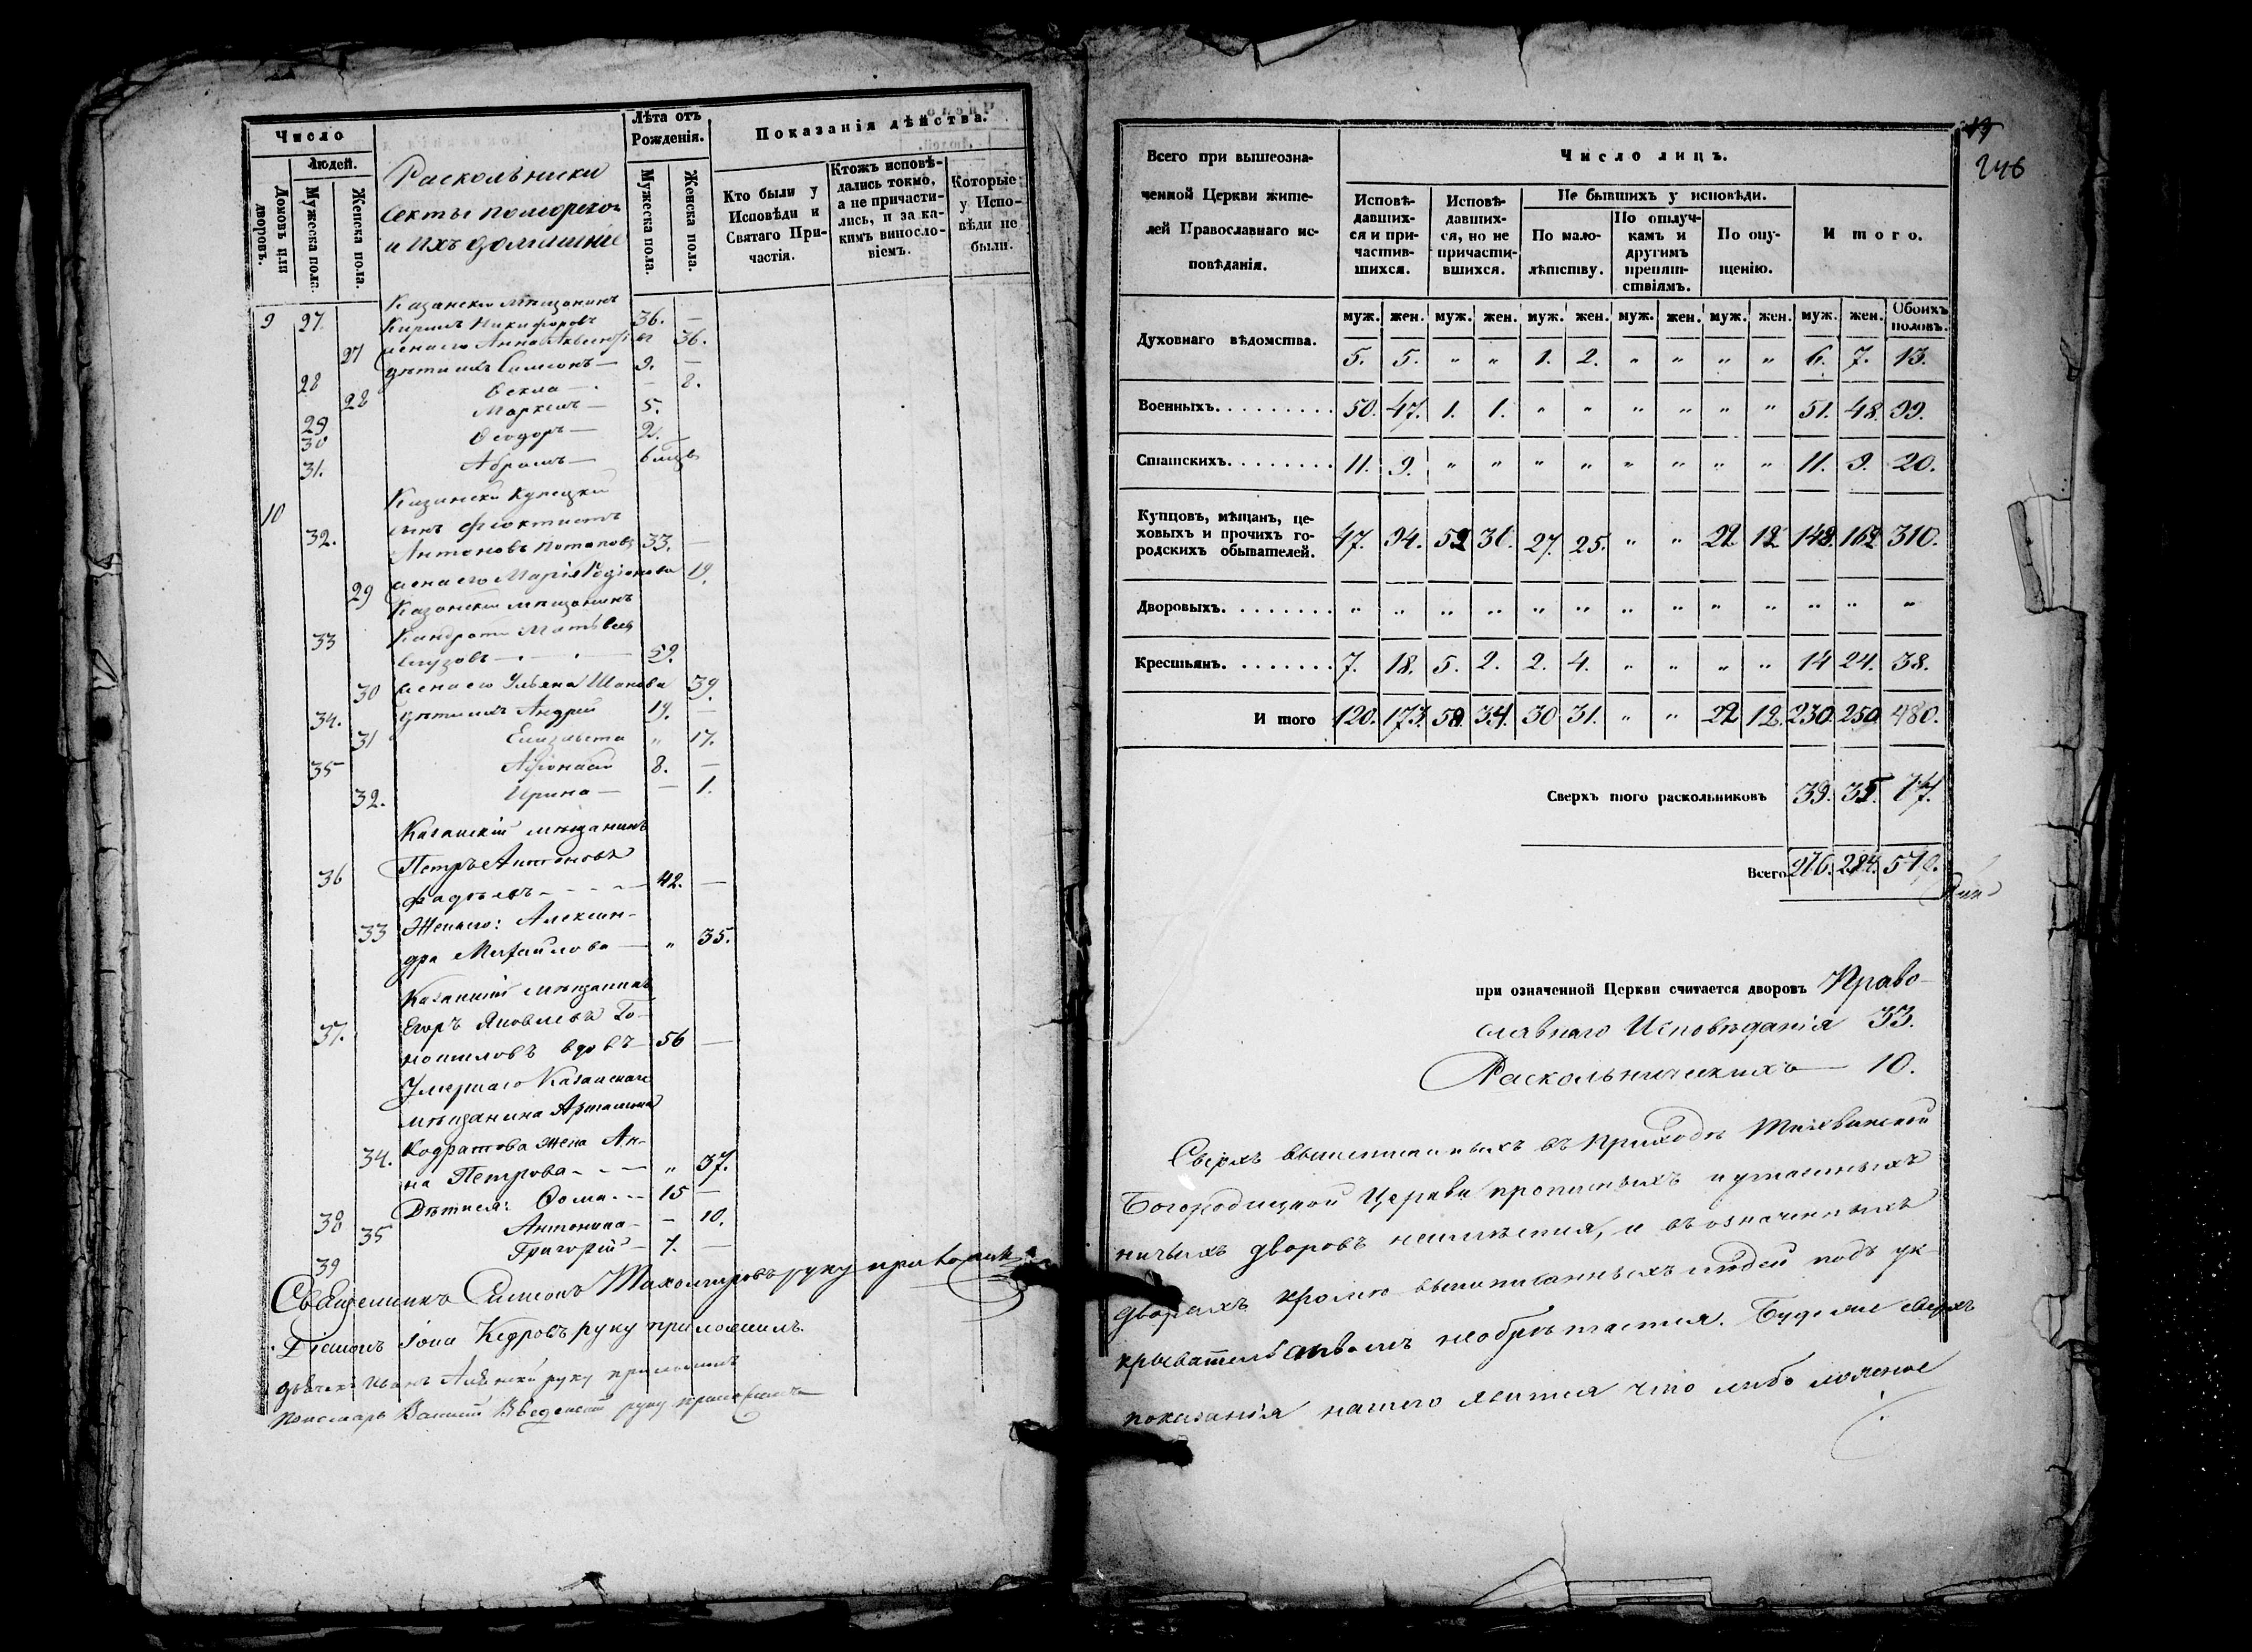 Число
Людей.
Домовъ или дворовъ.
Мужеска пола.
Женска пола.
Раскольники
секты поморской
и ихъ домашніе
Лѣта отъ
Рожденія.
Мужеска пола.
Женска пола.
Показанія дѣйства.
Кто были у
Исповѣди и
Святаго При-
частія.
Ктожъ исповѣ-
дались токмо,
а не причасти-
лись, и за ка-
кимъ винословіемъ.
Которые
у Испо-
вѣди не
были.
Казанскій мѣщанинъ
9 27. Кирилъ Никифоровъ 36. —
27 жена его Анна 36.
28 дѣти ихъ Симеонъ — 9. —
28 Ѳекла — — 8.
29 Маркелъ — 5.
30 Ѳеодоръ — 2.
31. Абрамъ —
10 Казанскій купецкій
32. сынъ Феоктистъ
Антоновъ Потаповъ 33. —
29 жена его Марія Родіонова 19.
Казанскій мѣщанинъ
33 Кандратъ Матвѣевъ
— 59.
30 жена его Ульяна 39.
34. дѣти ихъ Андрей 19. —
31 Елизавета „ 17.
35 Афонасій 8. —
32. Ирина — — 1.
Казанскій мѣщанинъ
36 Петръ Антоновъ
Фадѣевъ - - - - 42. —
33 Жена его: Алексан-
дра Михайлова — „ 35.
Казанскій мѣщанинъ
37. Егоръ Яковлевъ
вдовъ — 56 —
Умершаго Казанскаго
мѣщанина
34. Кодратова жена Ан-
на Петрова - - — „ 37.
38 Дѣти ея: Ѳома - - 15 —
35 Антонина — - 10.
39 Григорій — 7. —
Священникъ Симеонъ руку приложилъ
Діаконъ Іона Кедровъ руку приложилъ.
Дьячекъ Иванъ руку приложилъ
Пономарь Василій Введенскій руку приложилъ
19
246
Всего при вышеозна-
ченной Церкви жите-
лей Православнаго ис-
повѣданія.
Число лицъ.
Исповѣ-
давших-
ся и при-
частив-
шихся.
Исповѣ-
давших-
ся, но не
причасти-
вшихся.
Не бывшихъ у исповѣди.
По мало-
лѣтству.
По отлуч-
камъ и
другимъ
препят-
ствіямъ.
По опу-
щенію.
Итого.
муж. жен. муж. жен. муж. жен. муж. жен. муж. жен. муж. жен. Обоихъ половъ.
Духовнаго вѣдомства. 5. 5. „ „ 1. 2. „ „ „ „ 6. 7. 13.
Военныхъ. 50. 47. 1. 1. „ „ „ „ „ „ 51. 48. 99.
Статскихъ. 11. 9. „ „ „ „ „ „ „ „ 11. 9. 20.
Купцовъ, мѣщанъ, це-
ховыхъ и прочихъ го-
родскихъ обывателей. 47. 94. 52 31. 27. 25. „ „ 22. 12 148. 162 310.
Дворовыхъ. „ „ „ „ „ „ „ „ „ „ „ „ „
Крестьянъ. 7. 18. 5. 2. 2. 4. „ „ „ „ 14 24. 38.
И того 120. 173. 58. 34. 30 31. „ „ 22 12. 230. 250. 480.
Сверхъ того раскольниковъ 39. 35.
Всего
при означенной Церкви считается дворовъ Право-
славнаго Исповѣданія 33.
Раскольническихъ — 10.
Сверхъ вышеписанныхъ въ приходѣ Тихвинской
Богородицкой Церкви прописныхъ и утаенныхъ
ничьихъ дворовъ неимѣется, и въ означенныхъ
дворахъ кромѣ вышеписанныхъ людей подъ ук-
рывательствомъ необрѣтается. Буде же сверхъ
показанія нашего явится что либо ложное